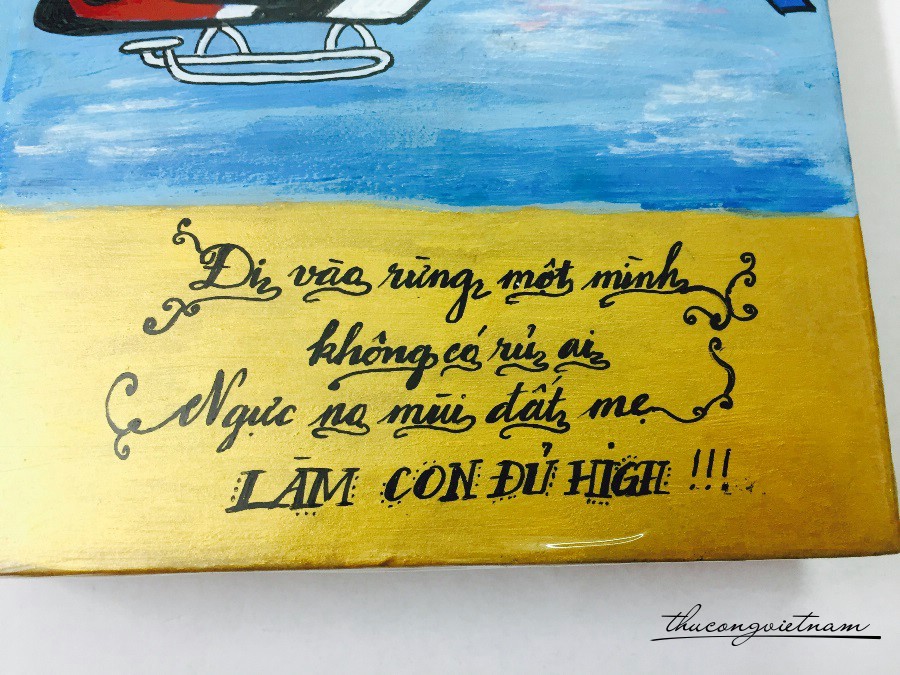 Đi vào rừng một mình
không có rủ ai
Ngực na mùi đất mẹ
LÀM CON ĐỦ HIGH !!!
thucongvietnam